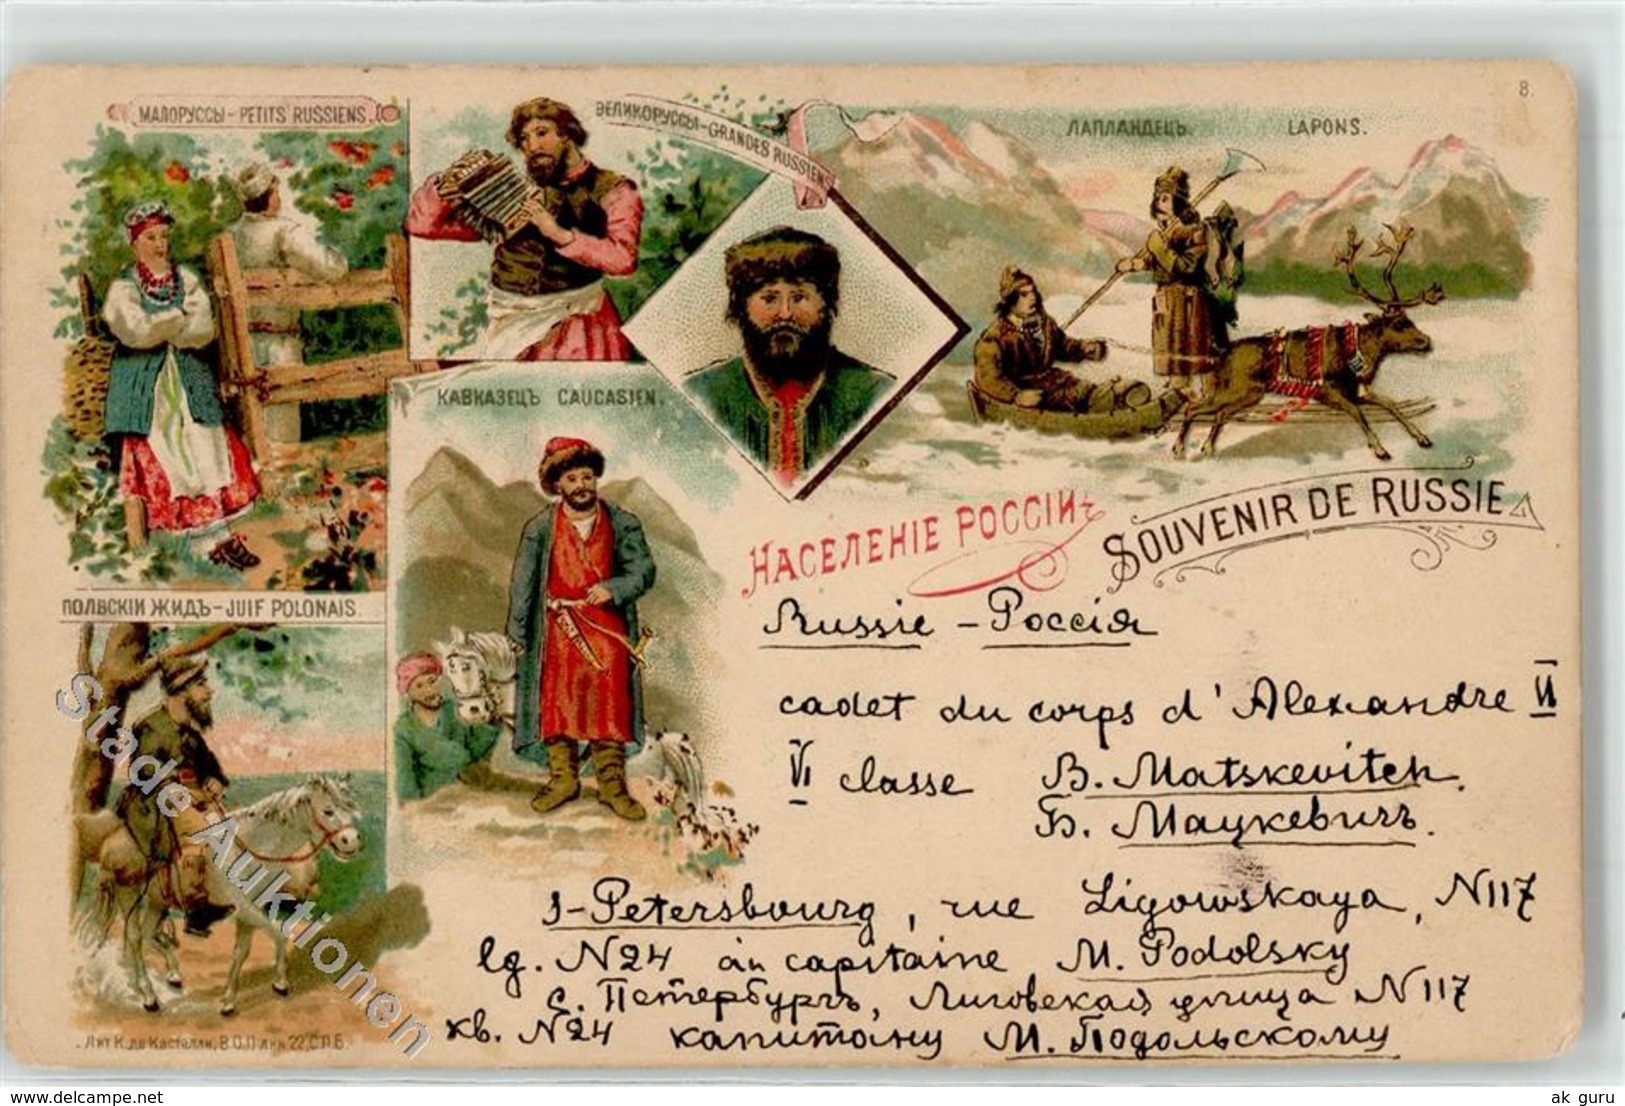 8.
МАЛОРУССЫ-PETITS RUSSIENS.
ВЕЛИКОРУССЫ-GRANDES RUSSIENS
ЛАПЛАНДЕЦЪ. LAPONS.
КАВКАЗЕЦЪ CAUCASIEN.
НАСЕЛЕНІЕ РОССІИ
SOUVENIR DE RUSSIE
ПОЛЬСКІЙ ЖИДЪ-JUIF POLONAIS.
Russie - Россія
cadet du corps d'Alexandre II
VI classe B. Matskevitch.
Б. Мацкевичъ.
S-Petersbourg, rue Ligowskaya, N117
lg. N24 au capitaine M. Podolsky
С. Петербургъ, Лиговская улица N117
кв. N24 капитану М. Подольскому
Лит К. де Кастелли, В.О. 11 лин. 22, С.П.Б.
Stade Auktionen
www.delcampe.net
ak guru